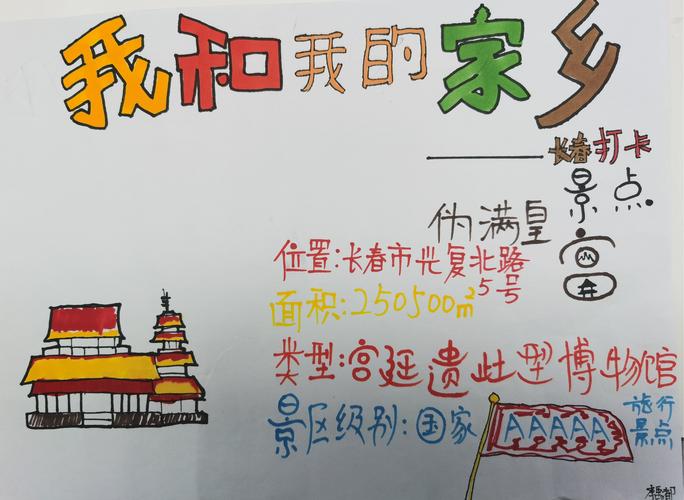 我和我的家乡
——长春打卡
景点
伪满皇宫
位置:长春市光复北路
5号
面积:250500m²
类型:宫廷遗址型博物馆
景区级别:国家AAAAA旅行
景点